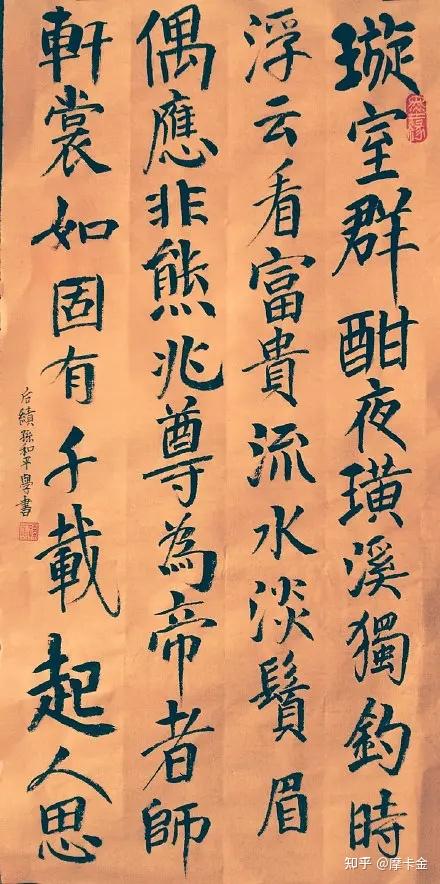 璇室群酣夜璜溪獨釣時
浮云看富貴流水淡鬚眉
偶應非熊兆尊為帝者師
軒裳如固有千載起人思
后績孫和平學書
知乎 @摩卡金